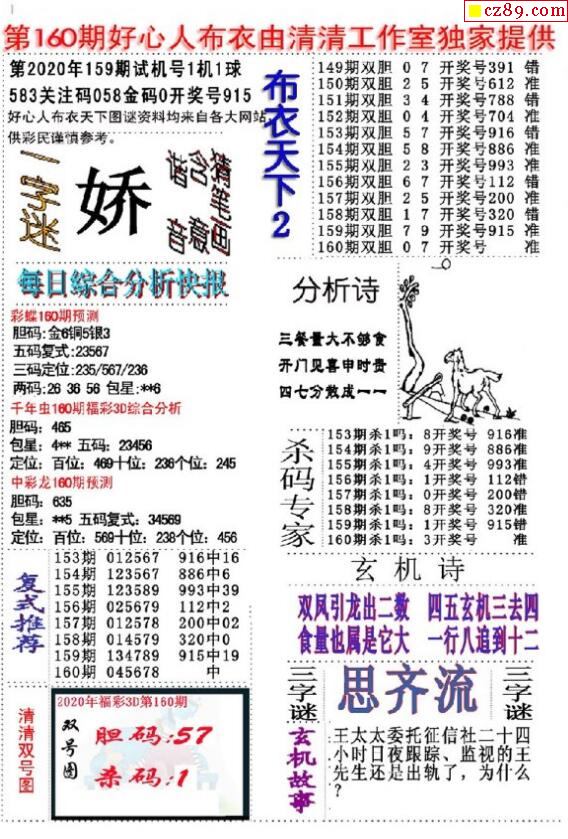 cz89.com
第160期好心人布衣由清清工作室独家提供
第2020年159期试机号1机1球
583关注码058金码0开奖号915
好心人布衣天下图谜资料均来自各大网站
供彩民谨慎参考。
一字谜
娇
猜笔画
含意
谐音
布衣天下2
149期双胆 0 7 开奖号391 错
150期双胆 2 5 开奖号612 准
151期双胆 3 4 开奖号788 错
152期双胆 0 4 开奖号704 准
153期双胆 5 7 开奖号916 错
154期双胆 5 8 开奖号886 准
155期双胆 2 3 开奖号993 准
156期双胆 6 7 开奖号112 错
157期双胆 2 5 开奖号200 准
158期双胆 1 7 开奖号320 错
159期双胆 7 9 开奖号915 准
160期双胆 0 7 开奖号 准
每日综合分析快报
彩蝶160期预测
胆码:金6铜5银3
五码复式:23567
三码定位:235/567/236
两码:26 36 56 包星:**6
千年虫160期福彩3D综合分析
胆码: 465
包星: 4** 五码: 23456
定位: 百位: 469十位: 236个位: 245
中彩龙160期预测
胆码: 635
包星: **5 五码复式: 34569
定位: 百位: 569十位: 238个位: 456
分析诗
三餐量大不够食
开门见喜申时贵
四七分散成一一
杀码专家
153期杀1吗: 8开奖号 916准
154期杀1吗: 9开奖号 886准
155期杀1吗: 4开奖号 993准
156期杀1吗: 1开奖号 112错
157期杀1吗: 0开奖号 200错
158期杀1吗: 8开奖号 320准
159期杀1吗: 1开奖号 915错
160期杀1吗: 3开奖号 准
复式推荐
153期 012567 916中16
154期 123567 886中6
155期 123589 993中39
156期 025679 112中2
157期 012578 200中02
158期 014579 320中0
159期 134789 915中19
160期 045678 中
玄机诗
双凤引龙出二数 四五玄机三去四
食量也属是它大 一行八追到十二
三字谜
思齐流
三字谜
清清双号图
2020年福彩3D第160期
双号图
胆码:57
杀码:1
玄机故事
王太太委托征信社二十四
小时日夜跟踪、监视的王
先生还是出轨了，为什么
？